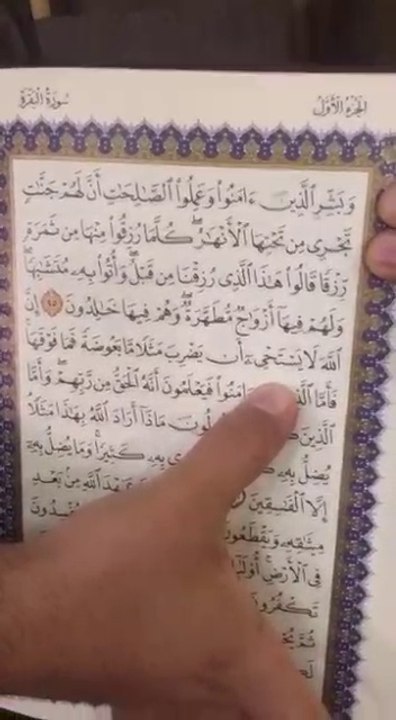 الجزء الأول
سورة البقرة
وَبَشِّرِ ٱلَّذِينَ ءَامَنُوا۟ وَعَمِلُوا۟ ٱلصَّٰلِحَٰتِ أَنَّ لَهُمْ جَنَّٰتٍ
تَجْرِى مِن تَحْتِهَا ٱلْأَنْهَٰرُ ۖ كُلَّمَا رُزِقُوا۟ مِنْهَا مِن ثَمَرَةٍ
رِّزْقًا قَالُوا۟ هَٰذَا ٱلَّذِى رُزِقْنَا مِن قَبْلُ ۖ وَأُتُوا۟ بِهِۦ مُتَشَٰبِهًا ۖ
وَلَهُمْ فِيهَآ أَزْوَٰجٌ مُّطَهَّرَةٌ ۖ وَهُمْ فِيهَا خَٰلِدُونَ ٢٥ إِنَّ
ٱللَّهَ لَا يَسْتَحْىِۦٓ أَن يَضْرِبَ مَثَلًا مَّا بَعُوضَةً فَمَا فَوْقَهَا ۚ
فَأَمَّا ءَامَنُوا۟ فَيَعْلَمُونَ أَنَّهُ ٱلْحَقُّ مِن رَّبِّهِمْ ۖ وَأَمَّا
ٱلَّذِينَ مَاذَآ أَرَادَ ٱللَّهُ بِهَٰذَا مَثَلًا ۘ
يُضِلُّ بِهِۦ بِهِۦ كَثِيرًا ۚ وَمَا يُضِلُّ بِهِۦٓ
إِلَّا ٱلْفَٰسِقِينَ عَهْدَ ٱللَّهِ مِنۢ بَعْدِ
مِيثَٰقِهِۦ وَيَقْطَعُونَ
فِى ٱلْأَرْضِ ۚ